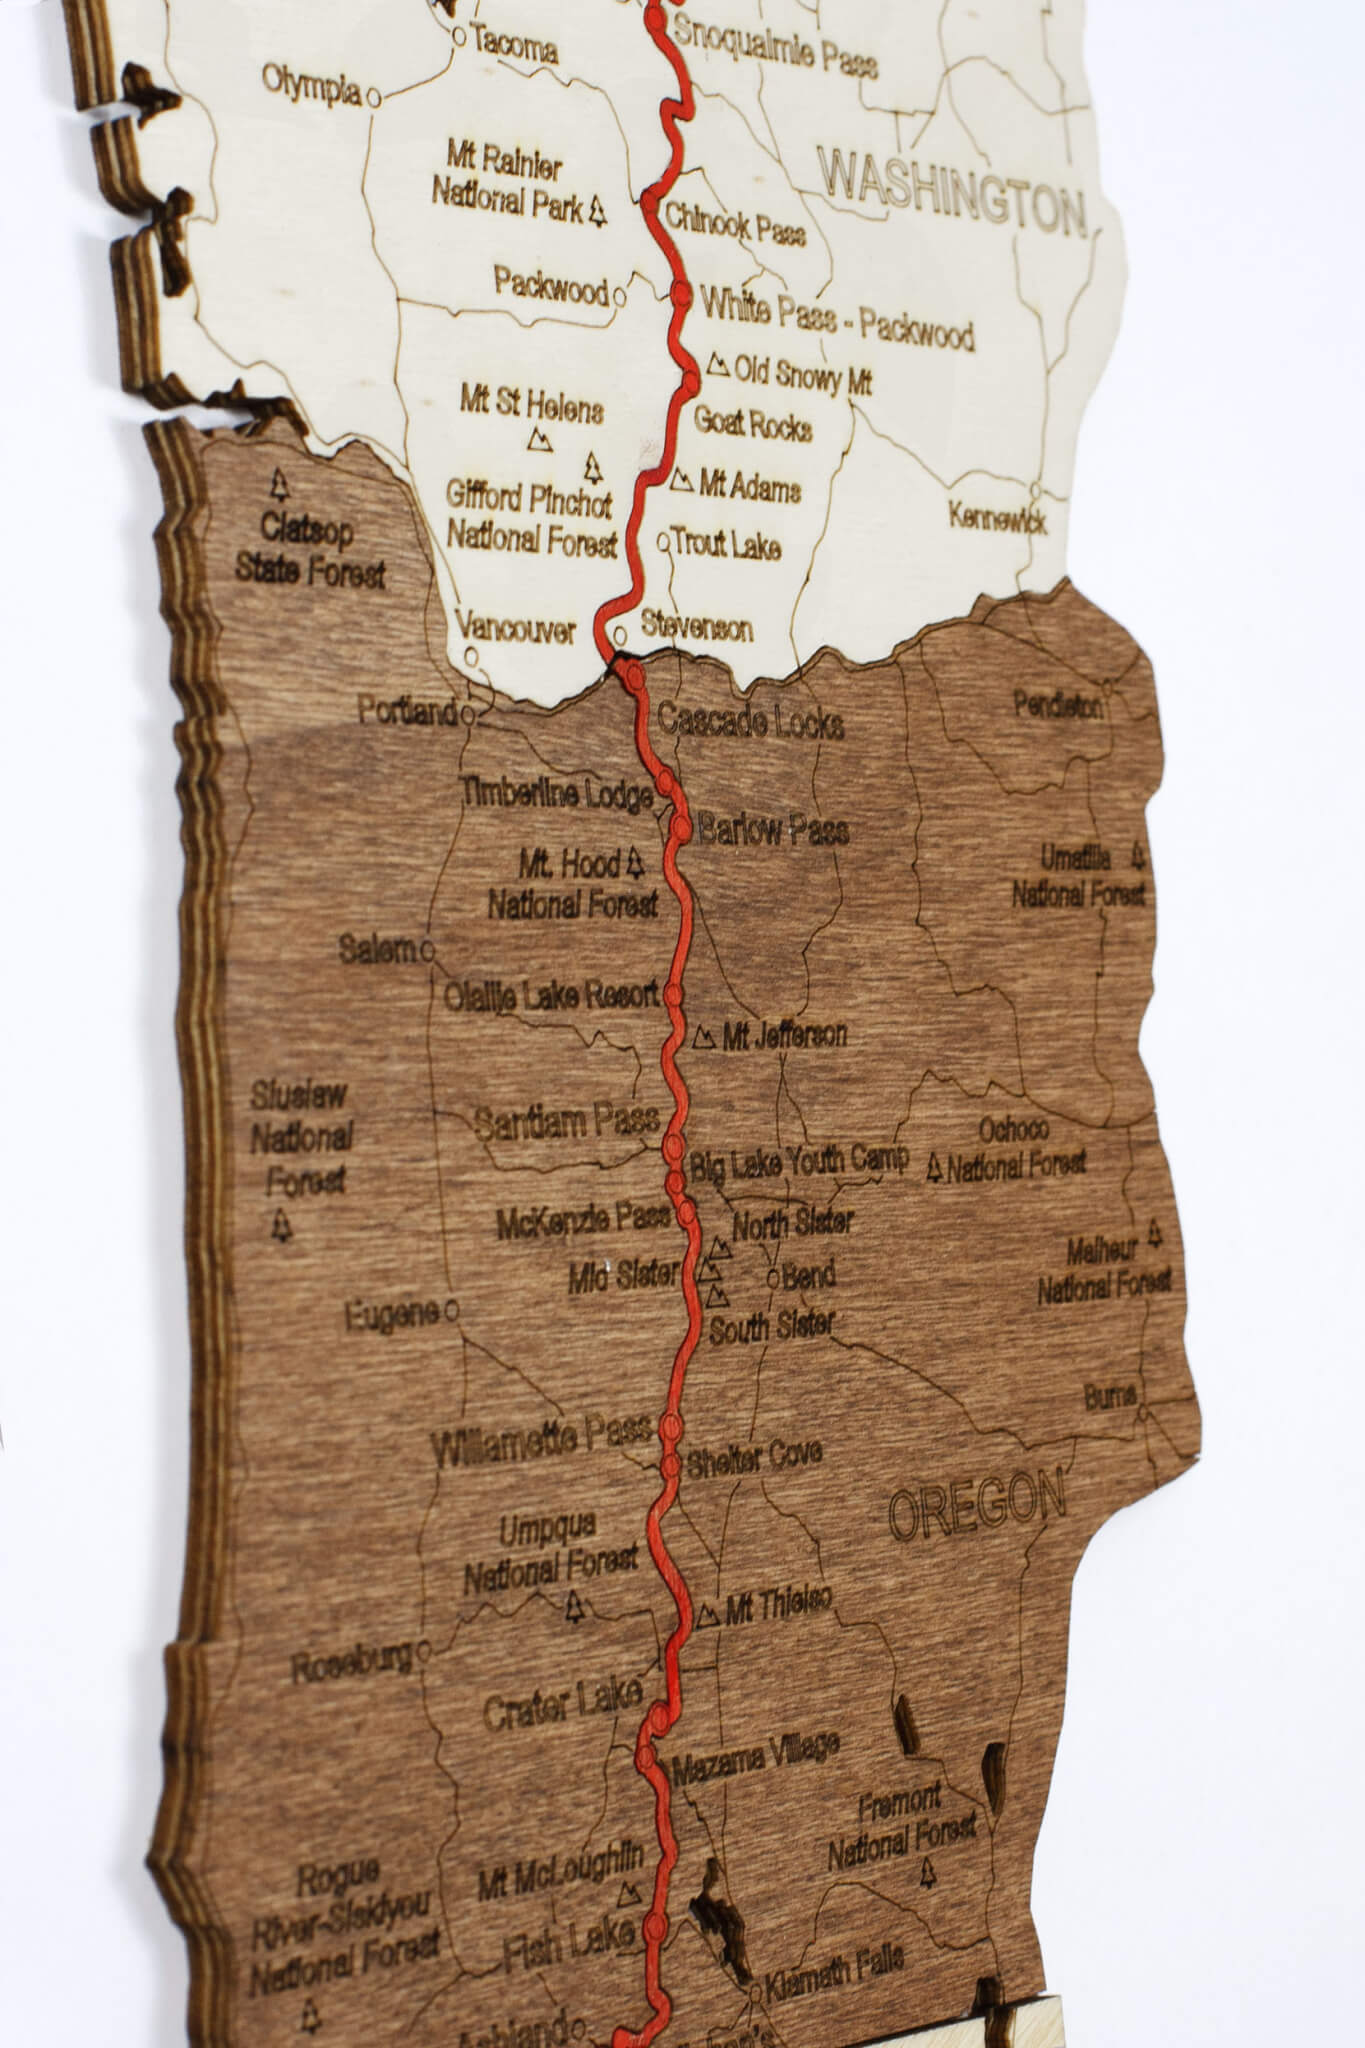 Snoqualmie Pass
Tacoma
Olympia
WASHINGTON
Mt Rainier
National Park
Chinook Pass
Packwood
White Pass - Packwood
Old Snowy Mt
Mt St Helens
Goat Rocks
Mt Adams
Gifford Pinchot
National Forest
Kennewick
Trout Lake
Clatsop
State Forest
Vancouver
Stevenson
Portland
Cascade Locks
Pendleton
Timberline Lodge
Barlow Pass
Mt. Hood
National Forest
Umatilla
National Forest
Salem
Olallie Lake Resort
Mt Jefferson
Siuslaw
National
Forest
Santiam Pass
Big Lake Youth Camp
Ochoco
National Forest
McKenzie Pass
North Sister
Mid Sister
Bend
Malheur
National Forest
Eugene
South Sister
Burns
Willamette Pass
Shelter Cove
OREGON
Umpqua
National Forest
Mt Thielso
Roseburg
Crater Lake
Mazama Village
Fremont
National Forest
Mt McLoughlin
Rogue
River-Siskiyou
National Forest
Fish Lake
Klamath Falls
Ashland